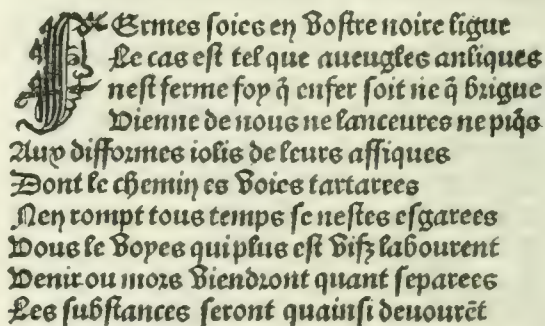 FErmes soies en vostre noire ligue
Le cas est tel que aueugles antiques
nest ferme foy q̃ enfer soit ne q̃ brigue
Vienne de nous ne lanceures ne piq̃s
Aux difformes iolis de leurs affiques
Dont le chemin es voies tartarees
Nen rompt tous temps se nestes esgarees
Vous le voyes qui plus est vifz labourent
Venir ou mors viendront quant separees
Les substances seront quainsi deuourẽt